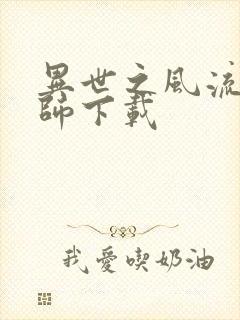 異世之風流
師下載
我愛喫奶油